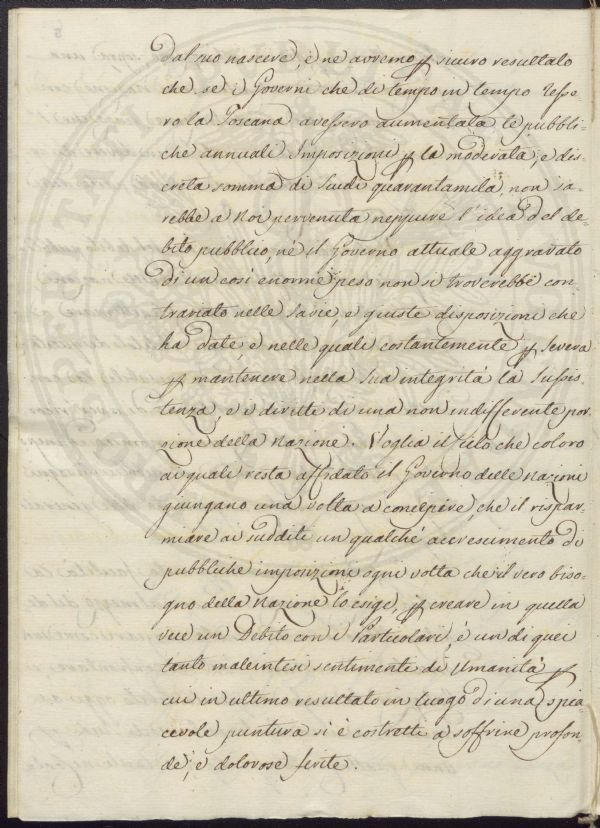 dal suo nascere, e ne avremo p sicuro resultato
che se i Governi che di tempo in tempo resse=
ro la Toscana avessero aumentata le pubbli=
che annuali Imposizioni p la moderata, e dis=
creta somma di Scudi quarantamila, non sa=
rebbe a Noi pervenuta neppure l'idea del de=
bito pubblico, nè il Governo attuale aggravato
di un così enorme peso non si troverebbe con=
trariato nelle savie, e giuste disposizioni che
ha date, e nelle quali costantemente p severa
p mantenere nella sua integrità la sussis=
tenza, e i diritti di una non indifferente por=
zione della Nazione. Voglia il Cielo che coloro
ai quali resta affidato il Governo delle Nazioni
giungano una volta a concepire, che il rispar=
miare ai sudditi un qualche accrescimento di
pubbliche imposizioni ogni volta che il vero biso=
gno della Nazione lo esige, p creare in quella
vece un Debito con i Particolari, è un di quei
tanto maleintesi sentimenti di Umanità p
cui in ultimo resultato in luogo di una spia=
cevole puntura si è costretti a soffrire profon=
de, e dolorose ferite.